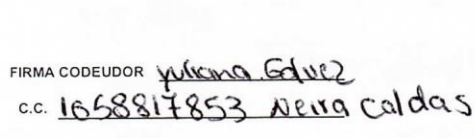 FIRMA CODEUDOR yuliana Galvez
C.C. 1658817853 Neira Caldas